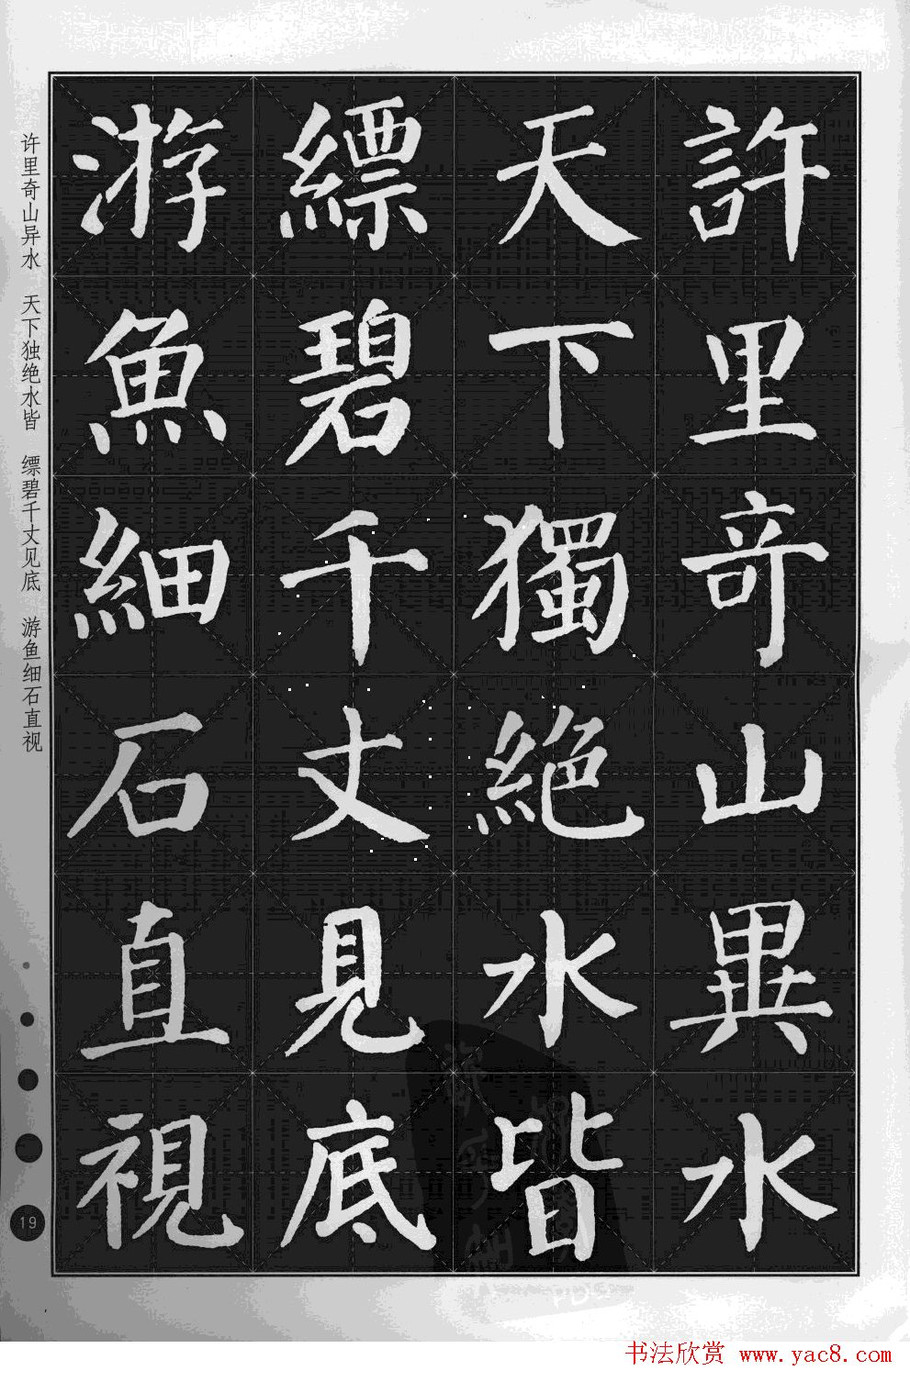 許里竒山異水
天下獨絶水皆
縹碧千丈見底
游魚細石直視
许里奇山异水 天下独绝水皆 缥碧千丈见底 游鱼细石直视
19
书法欣赏 www.yac8.com